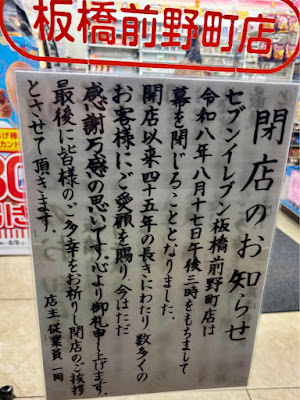 板橋前野町店
閉店のお知らせ
セブンイレブン板橋前野町店は
令和八年八月十七日午後三時をもちまして
幕を閉じることとなりました。
開店以来四十五年の長きにわたり、数多くの
お客様にご愛顧を賜り、今はただ
感謝万感の思いです。心より御礼申し上げます。
最後に皆様のご多幸をお祈りし閉店のご挨拶
とさせて頂きます。
店主 従業員一同